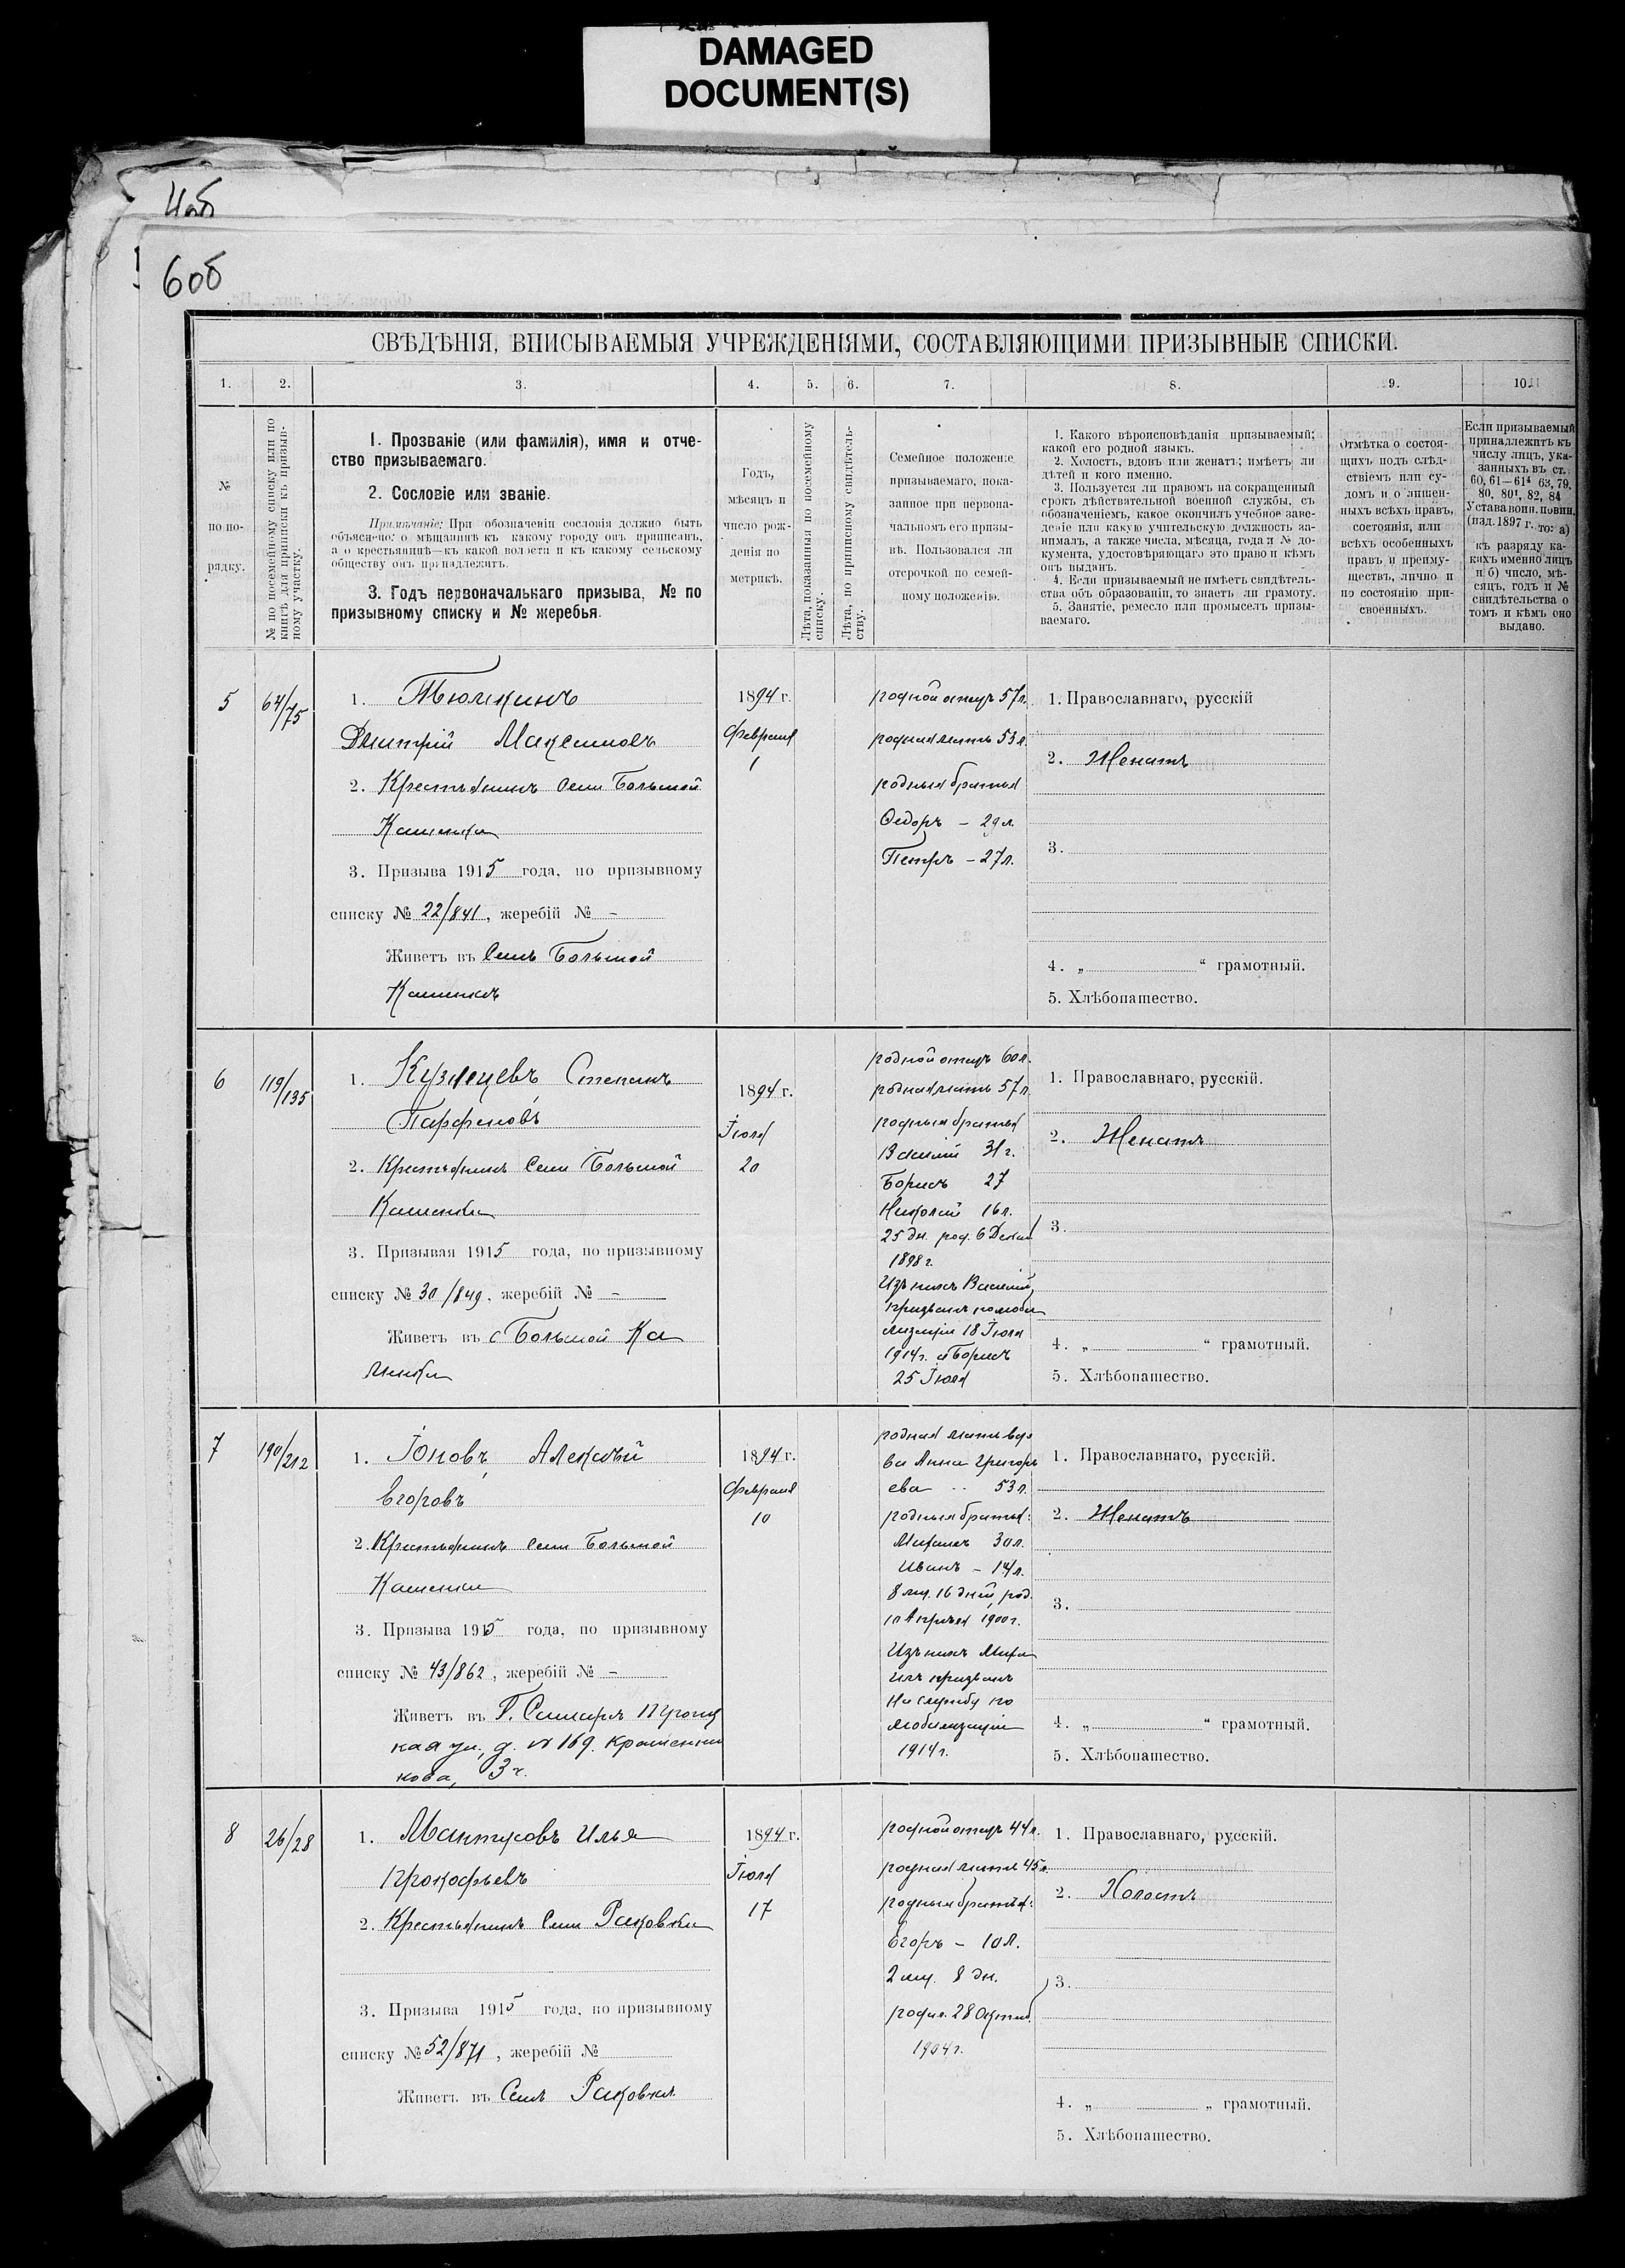 DAMAGED
DOCUMENT(S)
4об
6об
СВѢДѢНІЯ, ВПИСЫВАЕМЫЯ УЧРЕЖДЕНІЯМИ, СОСТАВЛЯЮЩИМИ ПРИЗЫВНЫЕ СПИСКИ.
1. 2. 3. 4. 5. 6. 7. 8. 9. 10.
№
по по-
рядку.
№ по посемейному списку или по
книгѣ для приписки къ призыв-
ному участку.
1. Прозваніе (или фамилія), имя и отче-
ство призываемаго.
2. Сословіе или званіе.
Примѣчаніе: При обозначеніи сословія должно быть
объяснено: о мѣщанинѣ къ какому городу онъ приписанъ,
а о крестьянинѣ—къ какой волости и къ какому сельскому
обществу онъ принадлежитъ.
3. Годъ первоначальнаго призыва, № по
призывному списку и № жеребья.
Годъ,
мѣсяцъ и
число рож-
денія по
метрикѣ.
Лѣта, показанныя по посемейному
списку.
Лѣта, по приписному свидѣтель-
ству.
Семейное положеніе
призываемаго, пока-
занное при первона-
чальномъ его призы-
вѣ. Пользовался ли
отсрочкой по семей-
ному положенію.
1. Какого вѣроисповѣданія призываемый;
какой его родной языкъ.
2. Холостъ, вдовъ или женатъ; имѣетъ ли
дѣтей и кого именно.
3. Пользуется ли правомъ на сокращенный
срокъ дѣйствительной военной службы, съ
обозначеніемъ, какое окончилъ учебное заве-
деніе или какую учительскую должность за-
нималъ, а также числа, мѣсяца, года и № до-
кумента, удостовѣряющаго это право и кѣмъ
онъ выданъ.
4. Если призываемый не имѣетъ свидѣтель-
ства объ образованіи, то знаетъ ли грамоту.
5. Занятіе, ремесло или промыселъ призы-
ваемаго.
Отмѣтка о состоя-
щихъ подъ слѣд-
ствіемъ или су-
домъ и о лишен-
ныхъ всѣхъ правъ,
состоянія, или
всѣхъ особенныхъ
правъ и преиму-
ществъ, лично и
по состоянію при-
своенныхъ.
Если призываемый
принадлежитъ къ
числу лицъ, ука-
занныхъ въ ст.
60, 61—61⁴ 63, 79,
80, 80¹, 82, 84
Устава воин. повин.
(изд. 1897 г. то: а)
къ разряду ка-
кихъ именно лицъ
и б) число, мѣ-
сяцъ, годъ и №
свидѣтельства о
томъ и кѣмъ оно
выдано.
5 64/75
1. Тюмкинъ
Дмитрій Максимовъ
2. Крестьянинъ села Большой
Каменки
3. Призыва 1915 года, по призывному
списку № 22/841, жеребій № -
Живетъ въ Селѣ Большой
Каменкѣ
1894 г.
Февраля
1
родной отецъ 57 л.
родная мать 53 л.
родныя братья
Ѳедоръ - 29 л.
Петръ - 27 л.
1. Православнаго, русскій
2. Женатъ
3.
4. „ “ грамотный.
5. Хлѣбопашество.
6 119/135
1. Кузнецевъ, Степанъ
Парфеновъ
2. Крестьянинъ села Большой
Каменки
3. Призывая 1915 года, по призывному
списку № 30/849, жеребій № -
Живетъ въ с Большой Ка
менки
1894 г.
Іюля
20
родной отецъ 60 л.
родная мать 57 л.
родныя братья
Василій 31 г.
Борисъ 27
Николай 16 л.
25 дн. род. 6 Декаб
1898 г.
Изъ нихъ Василій
призванъ по моби
лизаціи 18 Іюля
1914 г. и Борисъ
25 Іюля
1. Православнаго, русскій.
2. Женатъ
3.
4. „ “ грамотный.
5. Хлѣбопашество.
7 190/212
1. Іоновъ, Алексѣй
Егоровъ
2. Крестьянинъ села Большой
Каменки
3. Призыва 1915 года, по призывному
списку № 43/862, жеребій № -
Живетъ въ Г. Самарѣ Троиц
кая ул., д. № 169. Крашенни
кова, 3 ч.
1894 г.
Февраля
10
родная мать вдо
ва Анна Григорь
ева .. 53 л.
родныя братья:
Михаилъ 30 л.
Иванъ - 14 л.
8 мц. 16 дней, род.
10 Апрѣля 1900 г.
Изъ нихъ Миха
илъ призванъ
на службу по
мобилизаціи
1914 г.
1. Православнаго, русскій.
2. Женатъ
3.
4. „ “ грамотный.
5. Хлѣбопашество.
8 26/28
1. Мантусовъ Илья
Прокофьевъ
2. Крестьянинъ села Раковки
3. Призыва 1915 года, по призывному
списку № 52/871, жеребій №
Живетъ въ Селѣ Раковкѣ
1894 г.
Іюля
17
родной отецъ 44 л.
родная мать 45 л.
родныя братья:
Егоръ - 10 л.
2 мц. 8 дн.
родил. 28 Октяб.
1904 г.
1. Православнаго, русскій.
2. Холостъ
3.
4. „ „ грамотный.
5. Хлѣбопашество.